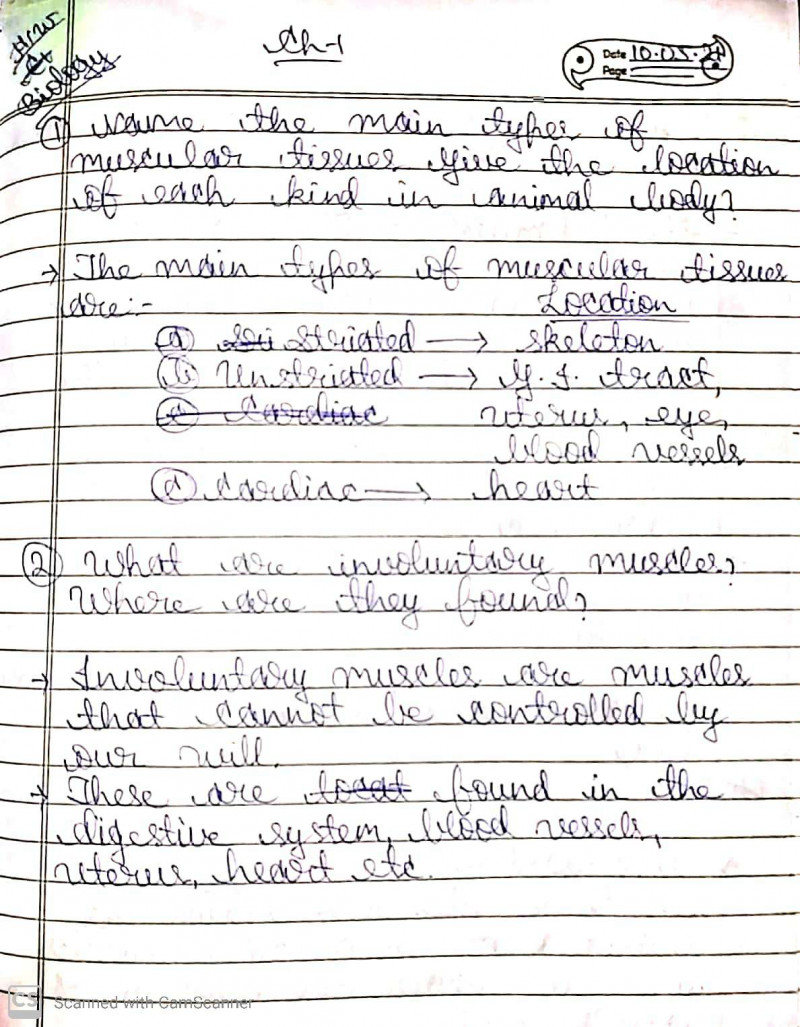 H.W
Ct
Biology
Ch-1
Date 10.05.21
Page
① Name the main types of
muscular tissues give the location
of each kind in animal body?
→ The main types of muscular tissues
are:- Location
ⓐ Striated → skeleton
ⓑ Unstriated → G.I. tract,
ⓒ Cardiac uterus, eye,
blood vessels
ⓒ Cardiac → heart
② What are involuntary muscles?
Where are they found?
→ Involuntary muscles are muscles
that cannot be controlled by
our will.
→ These are found in the
digestive system, blood vessels,
uterus, heart etc.
CS Scanned with CamScanner